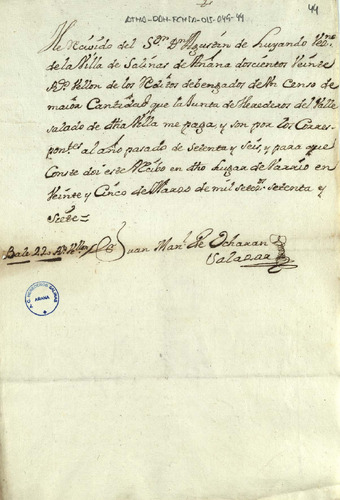 ATHA-DAH-FCHSA-015-045-44
44
He Recivido del S.or D.n Agustin de Luyando Vez.no
de la Villa de Salinas de Añana doscientos Veinte
R.s Vellon de los Reditos debengados de Un Censo de
maior Cantidad que la Junta de Herederos del Valle
salado de dha Villa me paga, y son por los Corres-
pon.tes al año pasado de Setenta y Seis, y para que
Conste doi este Recibo en dho Lugar de Barrio en
Veinte y Cinco de Marzo de mil Setez.os Setenta y
Siete=
Juan Man.l de Ocharan
Salazar
Bale 220 R.s Vellon
AÑANA